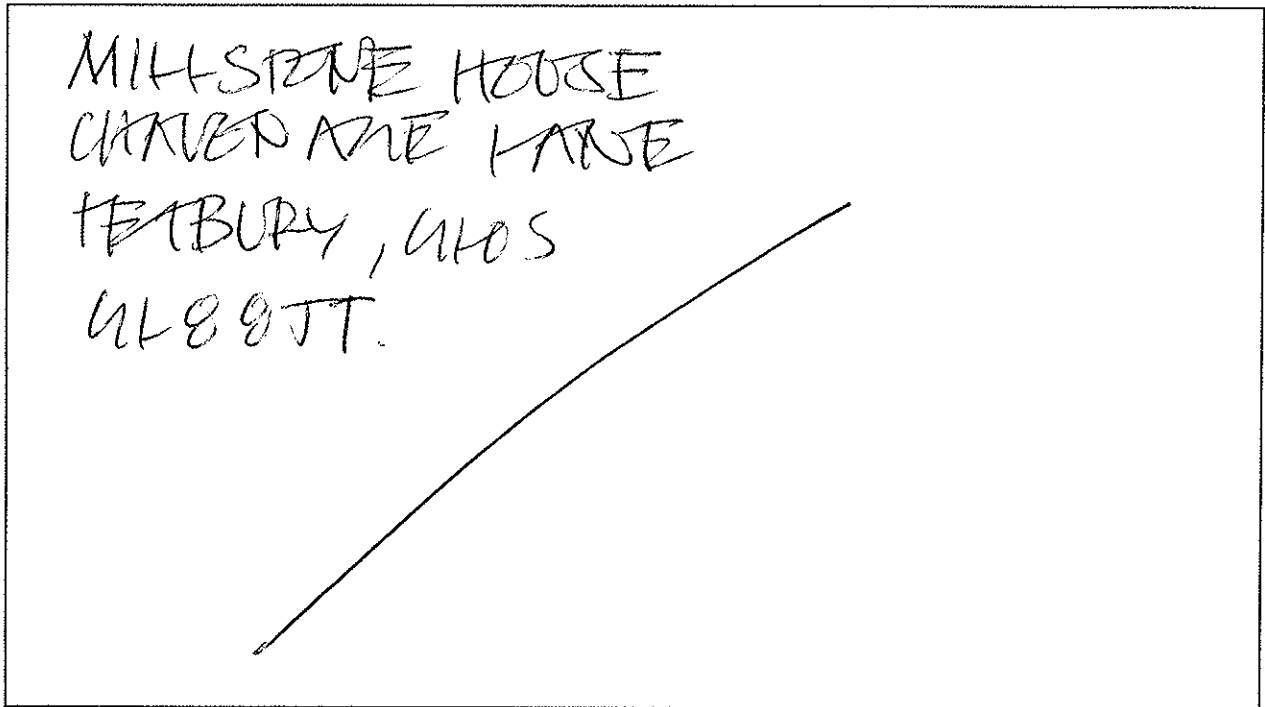 MILLSTONE HOUSE
CHAVENAGE LANE
TETBURY, GLOS
GL8 8JT.